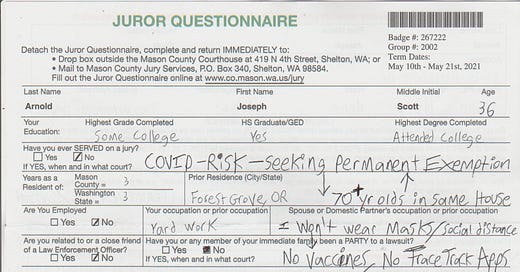 JUROR QUESTIONNAIRE
Badge #: 267222
Group #: 2002
Term Dates:
May 10th - May 21st, 2021
Detach the Juror Questionnaire, complete and return IMMEDIATELY to:
• Drop box outside the Mason County Courthouse at 419 N 4th Street, Shelton, WA; or
• Mail to Mason County Jury Services, P.O. Box 340, Shelton, WA 98584.
Fill out the Juror Questionnaire online at www.co.mason.wa.us/jury
Last Name First Name Middle Initial Age
Arnold Joseph Scott 36
Your Education: Highest Grade Completed HS Graduate/GED Highest Degree Completed
Some College Yes Attended College
Have you ever SERVED on a jury?
Yes No
COVID-RISK-seeking permanent Exemption
If YES, when and in what court?
Years as a Resident of: Mason County = 3
Washington State = 3
Prior Residence (City/State)
Forest Grove, OR
70+ yr olds in same House
Are You Employed
Yes No
Your occupation or prior occupation
Yard work
Spouse or Domestic Partner's occupation or prior occupation
I Won't wear Masks/social distance
Are you related to or a close friend of a Law Enforcement Officer?
Yes No
Have you or any member of your immediate family been a PARTY to a lawsuit?
Yes No
If YES, when and in what court?
No Vaccines, No Trace Track Apps